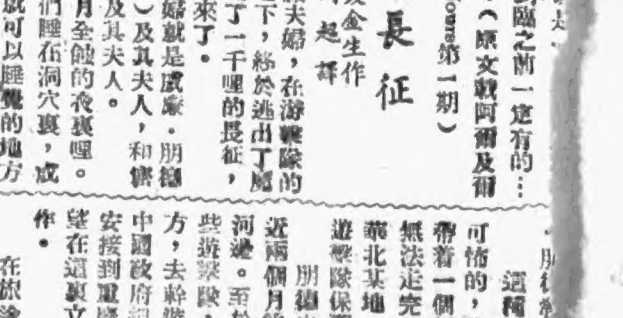 到臨之前一定有的…
(原文載阿爾及爾
第一期)
長征
金生作
起譯
夫婦,在游擊隊的
下,終於逃出了魔
了一千哩的長征,
來了。
婦就是威廉·朋德
)及其夫人,和
及其夫人。
月全蝕的夜裏哩。
們睡在洞穴裏,或
就可以睡覺的地方
這種
可怕的,
帶着一個
無法走完
華北某地
遊擊隊保
朋德
近兩個月
河邊。至於
些遊擊隊,
方,去幹
中國政府
安接到重慶
望在這裏立
作。
在旅途